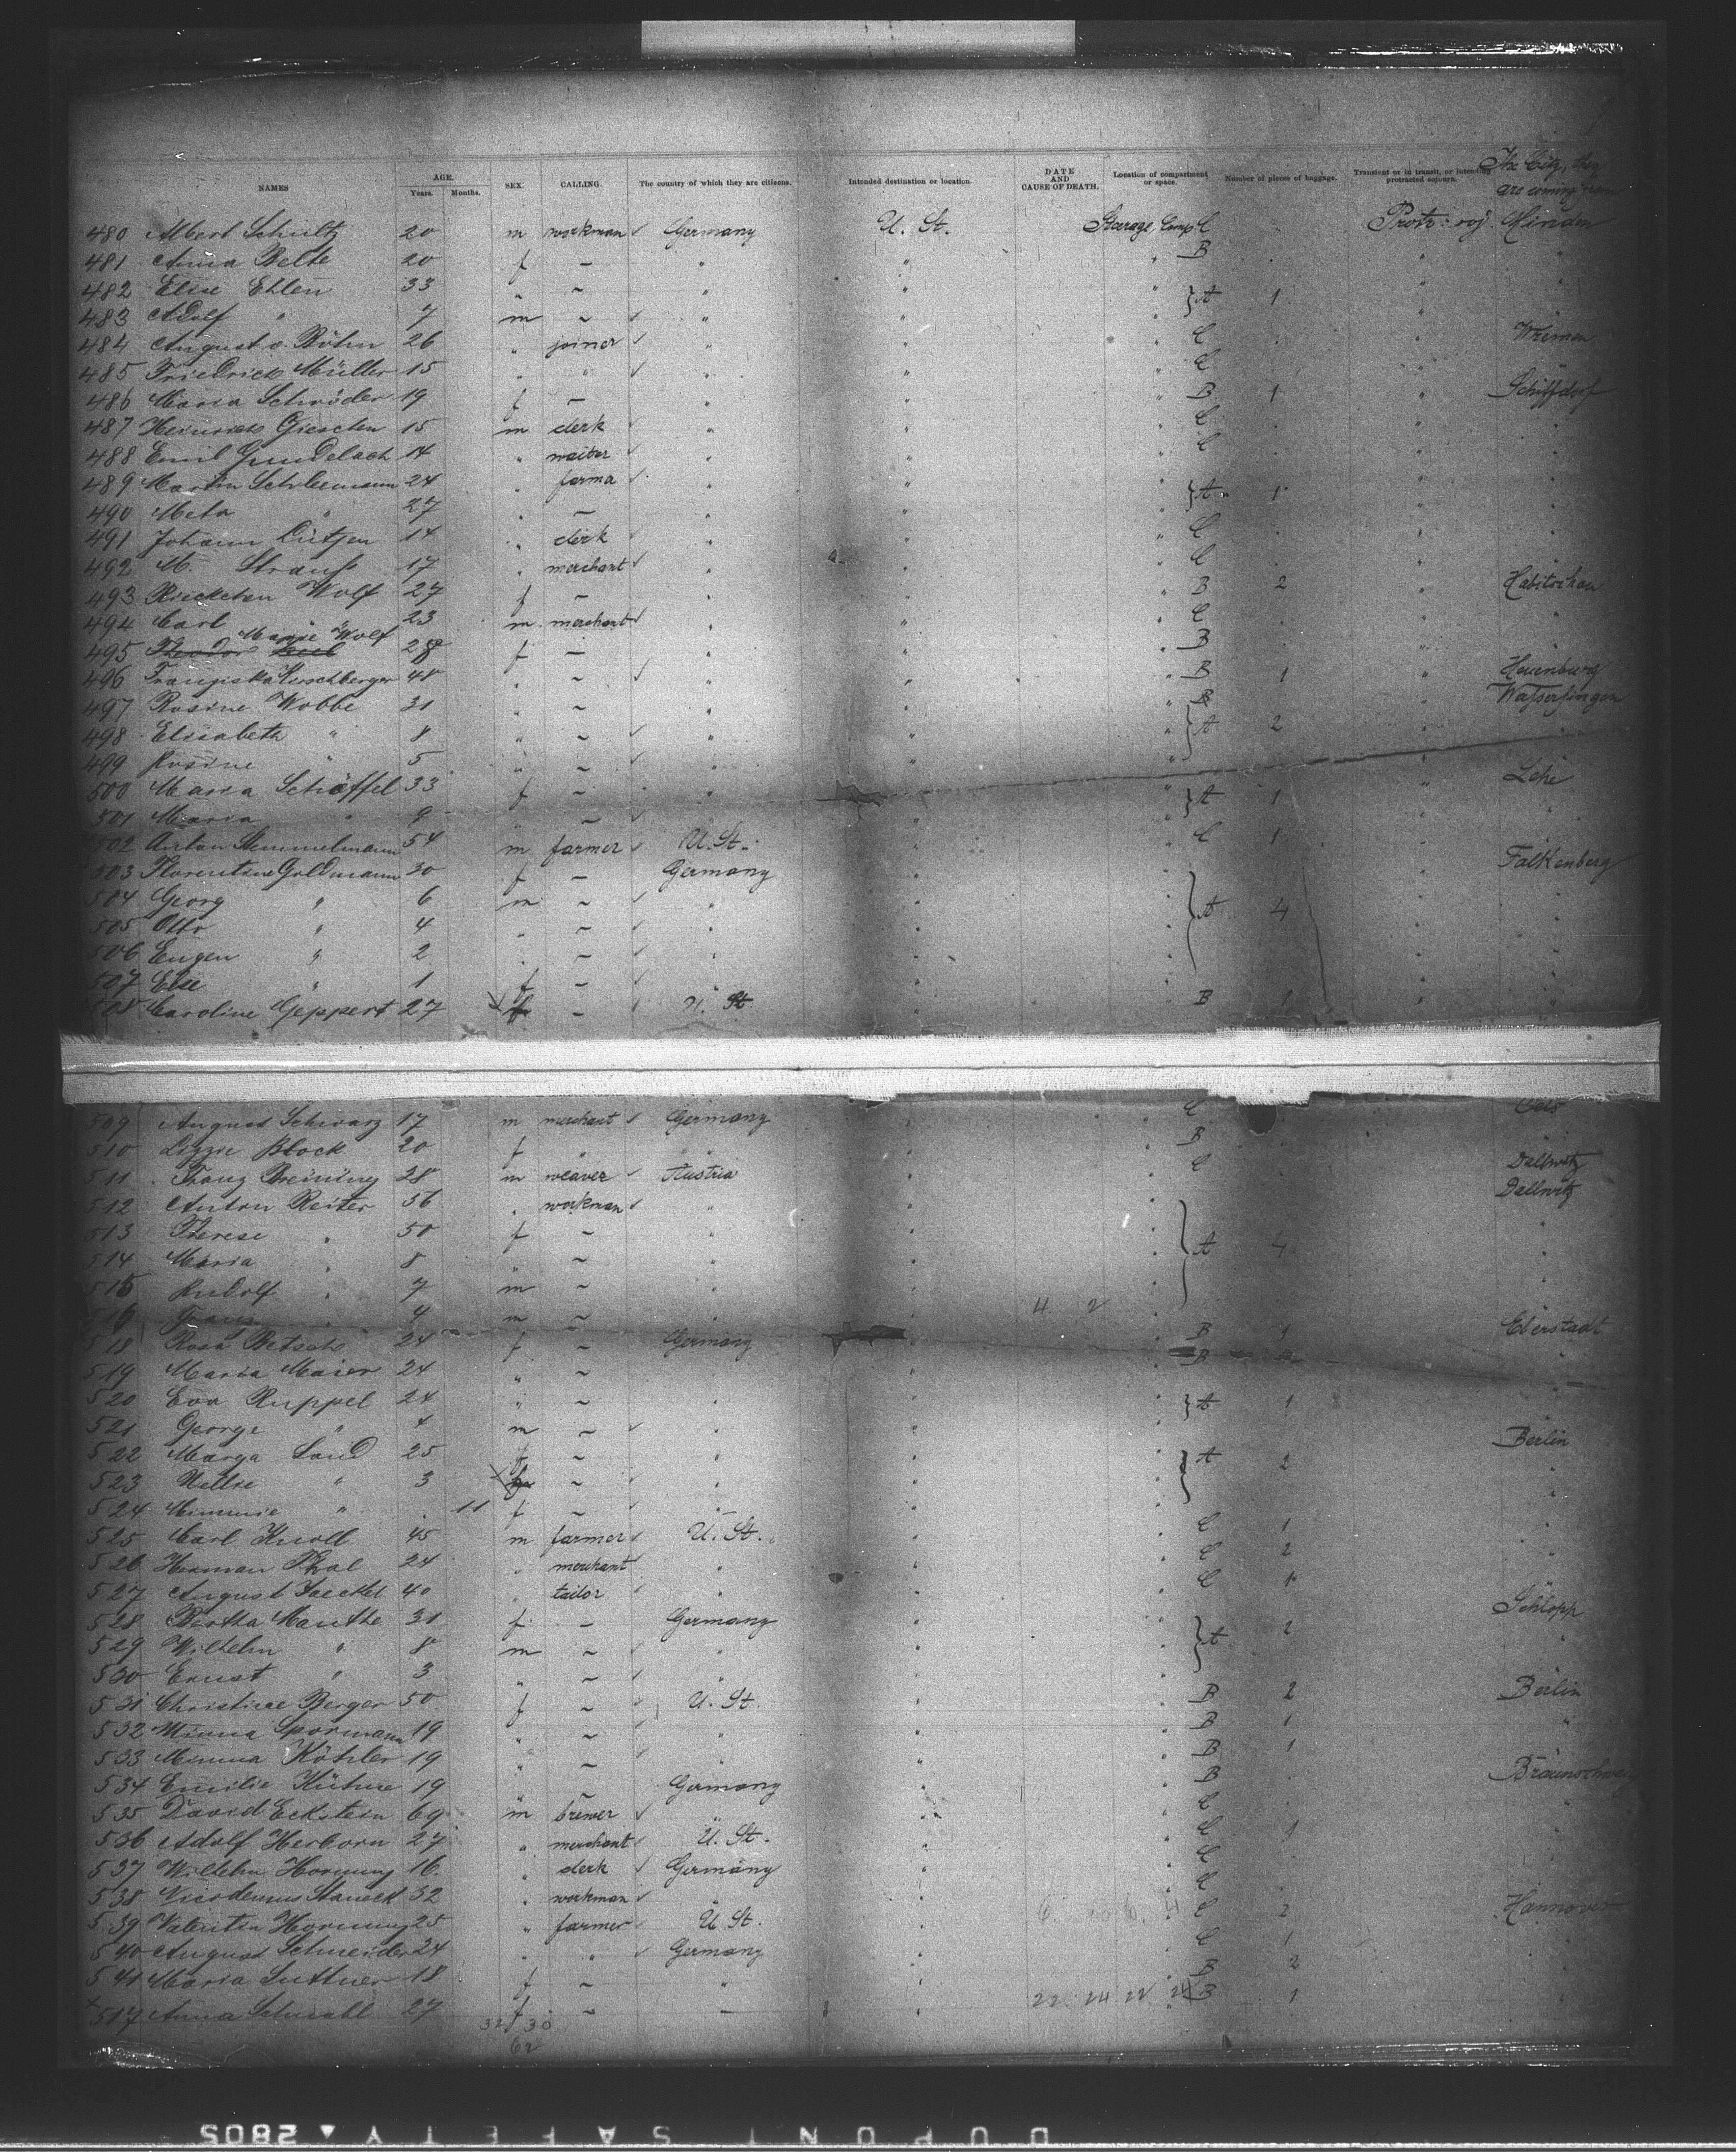 The City, they are coming from
NAMES AGE. Years. Months. SEX. CALLING. The country of which they are citizens. Intended destination or location. DATE AND CAUSE OF DEATH. Location of compartment or space. Number of pieces of baggage. Transient or in transit, or intending protracted sojourn.
480 Albert Schultz 20 m workman Germany U. St. Steerage Comp C Protr: soj. Minden
481 Anna Belte 20 f – " " " B " "
482 Elise Ehlen 33 " ~ " " " } A 1 " "
483 Adolf " 7 m ~ " " " " "
484 August v. Böhn 26 " joiner " " " C " Wremen
485 Friedrich Müller 15 " " " " " C " "
486 Maria Schröder 19 f – " " " B 1 " Schiffdorf
487 Heinrich Gieschen 15 m clerk " " " C " "
488 Emil Gundelach 14 " waiter " " " C " "
489 Martin Schliemann 24 " farma " " " } A 1 " "
490 Meta " 27 " – " " " " "
491 Johann Lütjen 14 " clerk " " " C " "
492 M. Strauß 17 " merchant " " " C " "
493 Rieckchen Wolf 27 f – " " " B 2 "
494 Carl " 23 m merchant " " " C " "
495 Marie Wolf 28 f – " " " B " "
496 Franziska Kirschberger 48 " ~ " " " B 1 "
497 Rosine Wobbe 31 " ~ " " " B "
498 Elisabeth " 8 " ~ " " " } A 2 " "
499 Rosine " 5 " ~ " " " " "
500 Maria Schäffel 33 f ~ " " " } A 1 " Lehe
501 Maria " 9 " ~ " " " " "
502 Anton Stemmelmann 54 m farmer U. St. " " C 1 " "
503 Florentine Goldmann 30 f – Germany " " " Falkenberg
504 Georg " 6 m ~ " " " } A 4 " "
505 Otto " 4 " ~ " " " " "
506 Eugen " 2 " ~ " " " " "
507 Else " 1 f ~ " " " " "
508 Caroline Geppert 27 f – U. St. " " B 1 " "
509 August Schwarz 17 m merchant Germany " " C
510 Lizzie Block 20 f " " " " B
511 Franz Breininy 28 m weaver Austria " " C Dallwitz
512 Anton Reiter 56 " workman " " " Dallwitz
513 Therese " 50 f ~ " " " "
514 Maria " 8 " ~ " " " } A 4 "
515 Rudolf " 7 m ~ " " " "
516 Franz " 4 m ~ " " 4 2 "
518 Rosa Betsch 24 f ~ Germany " " B 1 Eberstadt
519 Maria Maier 24 " ~ " " " B "
520 Eva Ruppel 24 " ~ " " " } A 1 "
521 George " 4 m ~ " " " "
522 Marga Laud 25 f ~ " " " } A 2 Berlin
523 Nellie " 3 f ~ " " " "
524 Minnie " 11 f ~ " " " "
525 Carl Knoll 45 m farmer U. St. " " C 1 "
526 Herman Thal 24 " merchant " " " C 2 "
527 August Jaeckel 40 " tailor " " " C 1 "
528 Bertha Manthe 31 f – Germany " " } A 2 Schlopp
529 Wilhelm " 8 m ~ " " " "
530 Ernst " 3 " ~ " " " "
531 Christine Berger 50 f ~ U. St. " " B 2 Berlin
532 Minna Spormann 19 " ~ " " " B 1 "
533 Minna Köhler 19 " ~ " " " B 1 "
534 Emilie Kühne 19 " ~ Germany " " B Braunschweig
535 David Eckstein 69 m brewer " " " C "
536 Adolf Herborn 27 " merchant U. St. " " C 1 "
537 Wilhelm Hornung 16 " clerk Germany " " C "
538 Nicodemus Staneck 32 " workman " " " C "
539 Valentin Hornung 25 " farmer U. St. " " C 2 Hannover
540 August Schneider 24 " " Germany " " C 1 "
541 Maria Luttner 18 f ~ " " " B 2 "
517 Anna Schwahl 27 f ~ – " 22 24 22 24 B 1 "
32/30
62
DUPONT SAFETY ▲ 2805